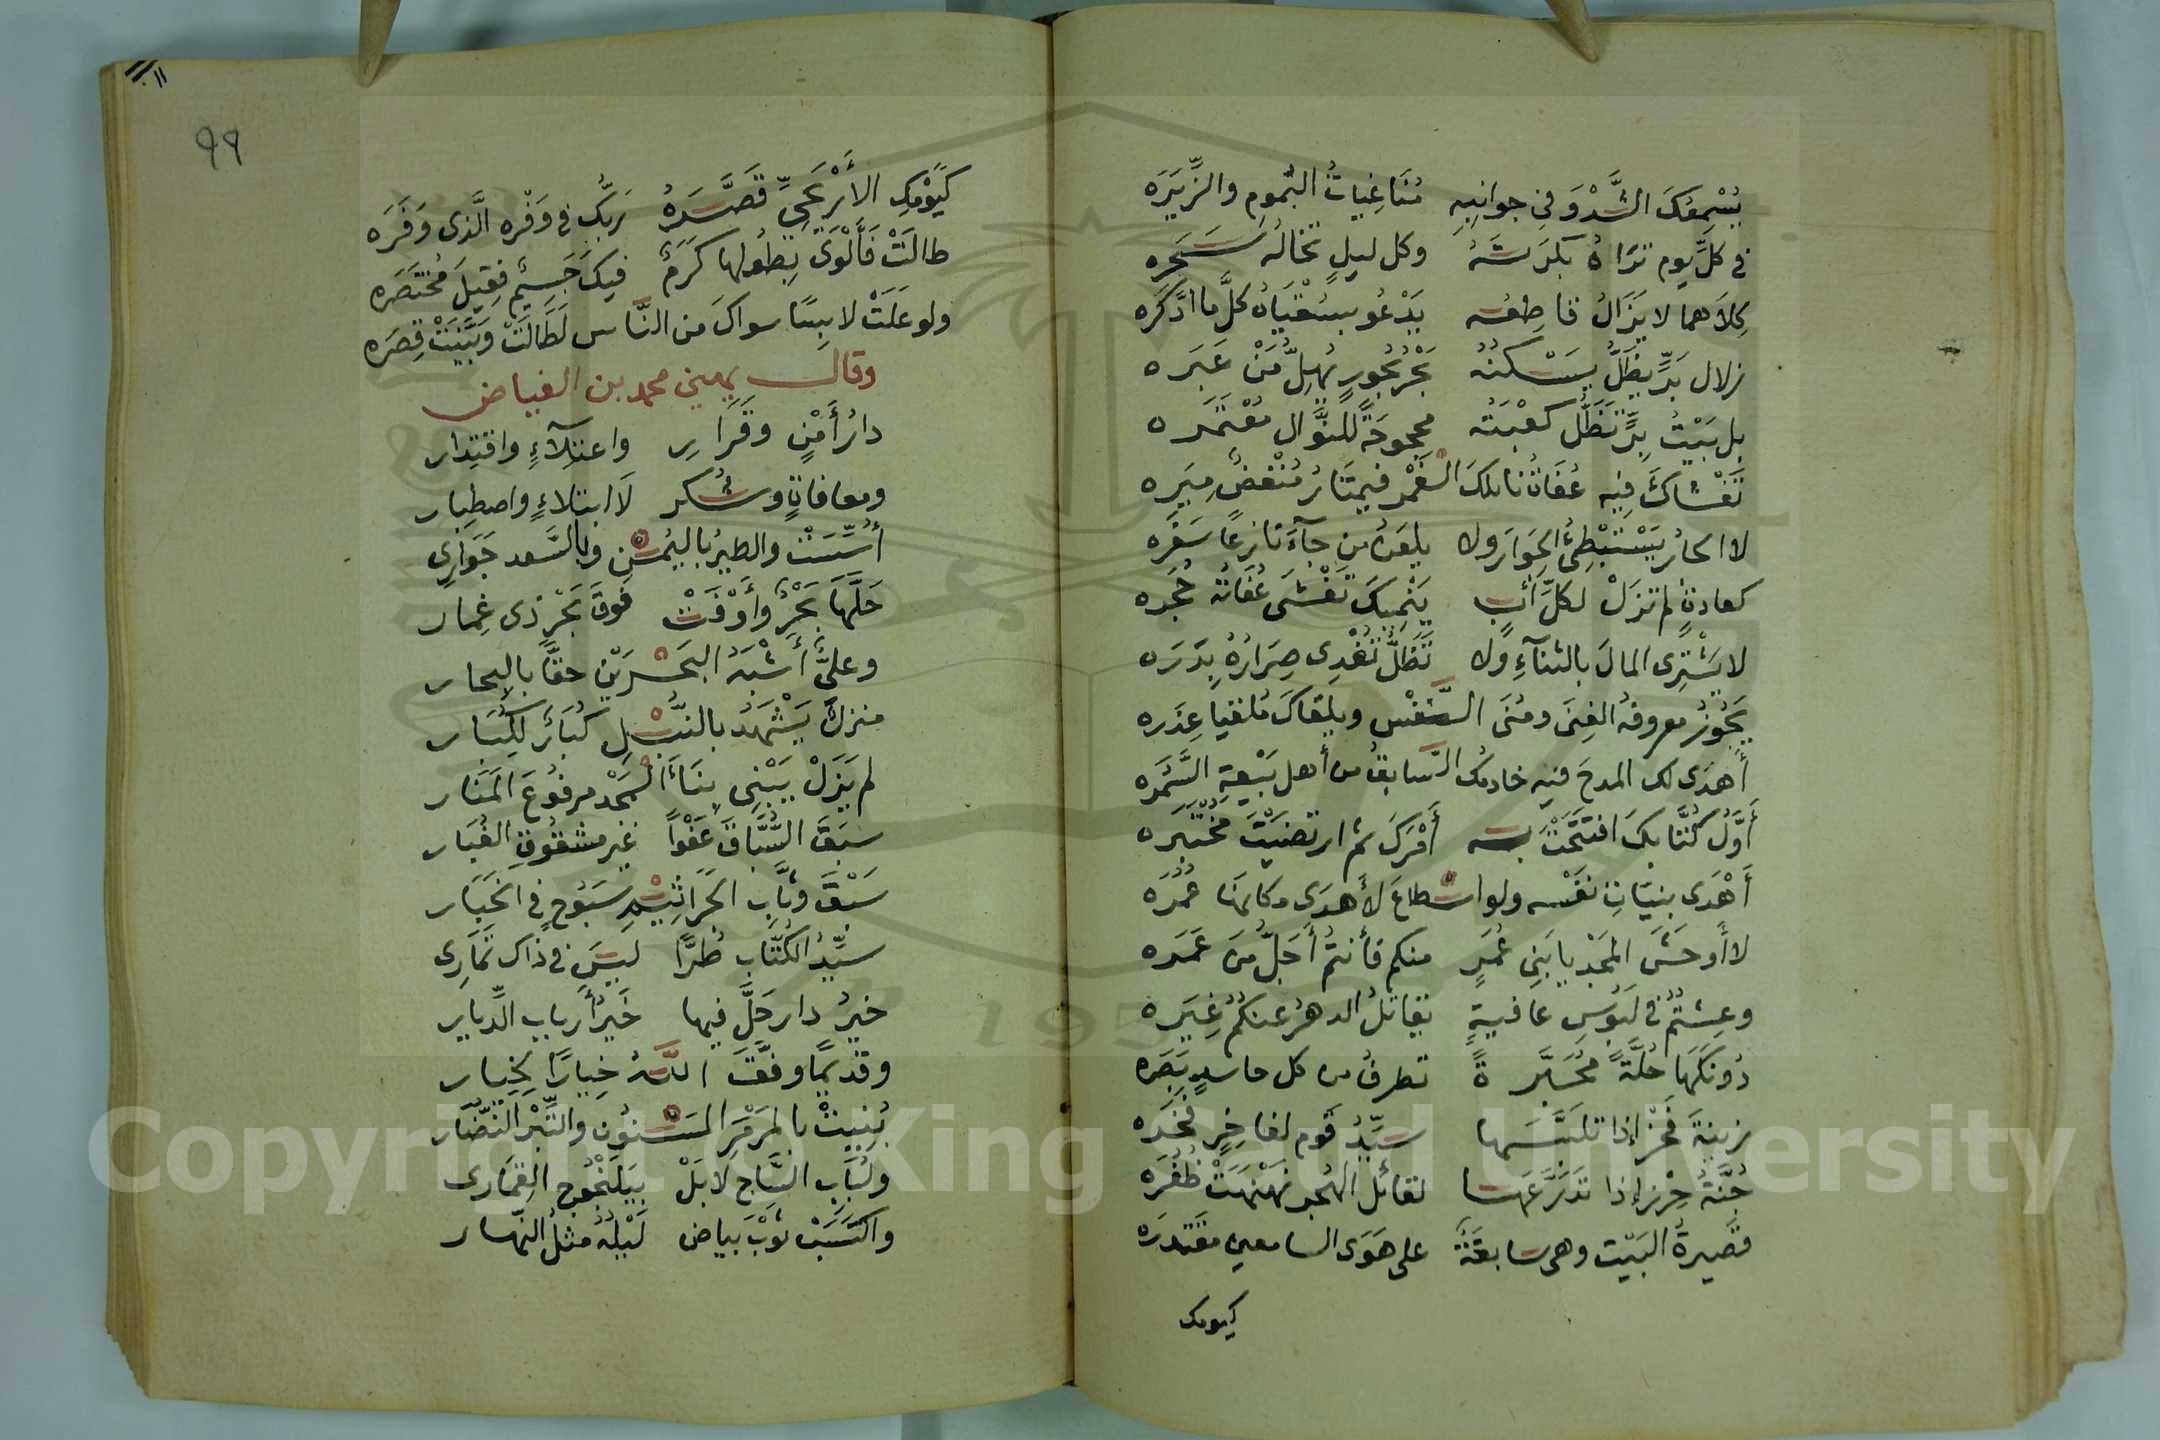 يُسْمِعُكَ الشَّدْوَ في جوانِبِهِ مُنَاغِيَاتُ البُمومِ والزِّيَرَه
في كلِّ يومٍ تراهُ بَكرَشَهُ وكل ليلٍ تخالُه سَحَرِه
كِلاَهما لا يَزَالُ قاطِعُه يَدْعُو بسُقْيَاهُ كلَّ ما ادَّكَره
زلال بَرٍّ يظَلُّ يسْكنُهُ بَحْرُ بُحُورٍ يُهِلُّ مَنْ عَبَره
بل بَيْتُ بِرٍّ تَظَلُّ كعْبَتُه محجوجَةً للنَّوَّال مُعْتَمَره
تَغْشاكَ فيه عُفَاةُ نائلكَ الغَمْرِ فيمتَارُ مُنْفِضٌ مِيَرِه
لا الجارُ يَسْتَبْطِئُ الجَوارَ ولا يلعَنُ من جآءَ نازِعًا سَفَرِه
كعادةٍ لم تزلْ لكلِّ أبٍ يَنْمِيكَ تَغْشَى عُفَاتُه حُجَره
لا يَشْتِرى المالَ بالثنآءِ ولا تَظَلُّ تَفْدِى صِرَارُهُ بِدَرَه
يَجُوزُ معروفُه الغِنَى ومُنَى النَّفْس ويلقاكَ مُلقيا عِذَره
أهدَى لك المدحَ فيه خادمُكَ السَّابقُ من أهل بَيْعةِ الشَّجَره
أوَّلُ كُتَّابكَ افتتَحْتَ به أمْرَكَ ثم ارتضَيْتَ مُخْتَبَره
أَهْدَى بنيَّاتِ نفْسه ولو اسْطاعَ لأهدَى مكانهَا عُمُرَه
لا أوحَشَ المَجْدُ يا بَنِي عُمَرٍ منكم فأنتمُ أجَلُّ مَنْ عَمَره
وعِشتُمُ في لَبُوسِ عافيةٍ يقاتلُ الدهرُ عنكمُ غِيَره
دُونَكَهَا حُلَّةً مُحَبَّرةً تطرفُ من كل حاسدٍ بَصَره
زينةَ فَخْرٍ إذا تلبَّسَها سيِّدُ قوم لفاخِرٍ فَخَره
جُنَّةُ حِرْزٍ إذا تدَرَّعَها لقائل الهُجر نَهْنَهَتْ ظُفُرَه
قصيرةُ البَيْت وهى سابغةٌ على هَوَى السامعين مقتدرَه
كيومك
٩٩
كيَوْمِكِ الأَرْيَحِيِّ قَصَّرَهُ رَبُّكِ في وَفْرِه الَّذى وَفَرَه
طالَتْ فَألْوَى بِطُولها كَرَمٌ فيكَ جَسِيمٌ فقِيلَ مُخْتَصَرَه
ولو علَتْ لابِسًا سواكَ من النَّاس لَطَالَتْ وَبَيَّنَتْ قِصَرَه
وقال يهني محمد بن الفياض
دارُ أَمْنٍ وقَرَارِ واعتِلآءٍ واقتِدار
ومعافاةٍ وشُكر لَا ابتلاءٍ واصطِبار
أُسِّسَتْ والطيرُ باليُمْنِ وبالسَّعد جَوَارِى
حَلَّهَا بَحْرٌ وأوْفَتْ فوقَ بَحْرٍ ذى غِمار
وعليٌّ أشْبَهُ البَحْرَيْنِ حقًّا بالبحار
منزلٌ يَشْهَدُ بالنُّبْلِ كُبَارٌ لِكُبَار
لم يَزَلْ يَبْنِى بِنَاءَ المَجْد مرفُوعَ المَنَار
سبَقَ السُّبَّاقَ عَفْوًا غيرَ مشقُوقِ الغُبَار
سَبْقَ وثَّابِ الجَرَاثِيمِ سَبُوحٍ في الخَبَار
سيِّدُ الكُتَّاب طُرًّا ليسَ في ذاك تَمارِى
خيرُ دارٍ حَلَّ فيها خَيْرُ أرباب الدِّيار
وقديمًا وفَّقَ اللَّهُ خِيارًا لخِيار
بُنِيَتْ بالمَرْمَرِ المَسْنُونِ والتِّبْرِ النُّضَار
ولُبَابِ السَّاجِ لا بَلْ بيَلَنْجُوجِ القِمَارى
واكتسَتْ ثوْبَ بياض لَيْلُهُ مثلُ النَّهار
Copyright © King Saud University